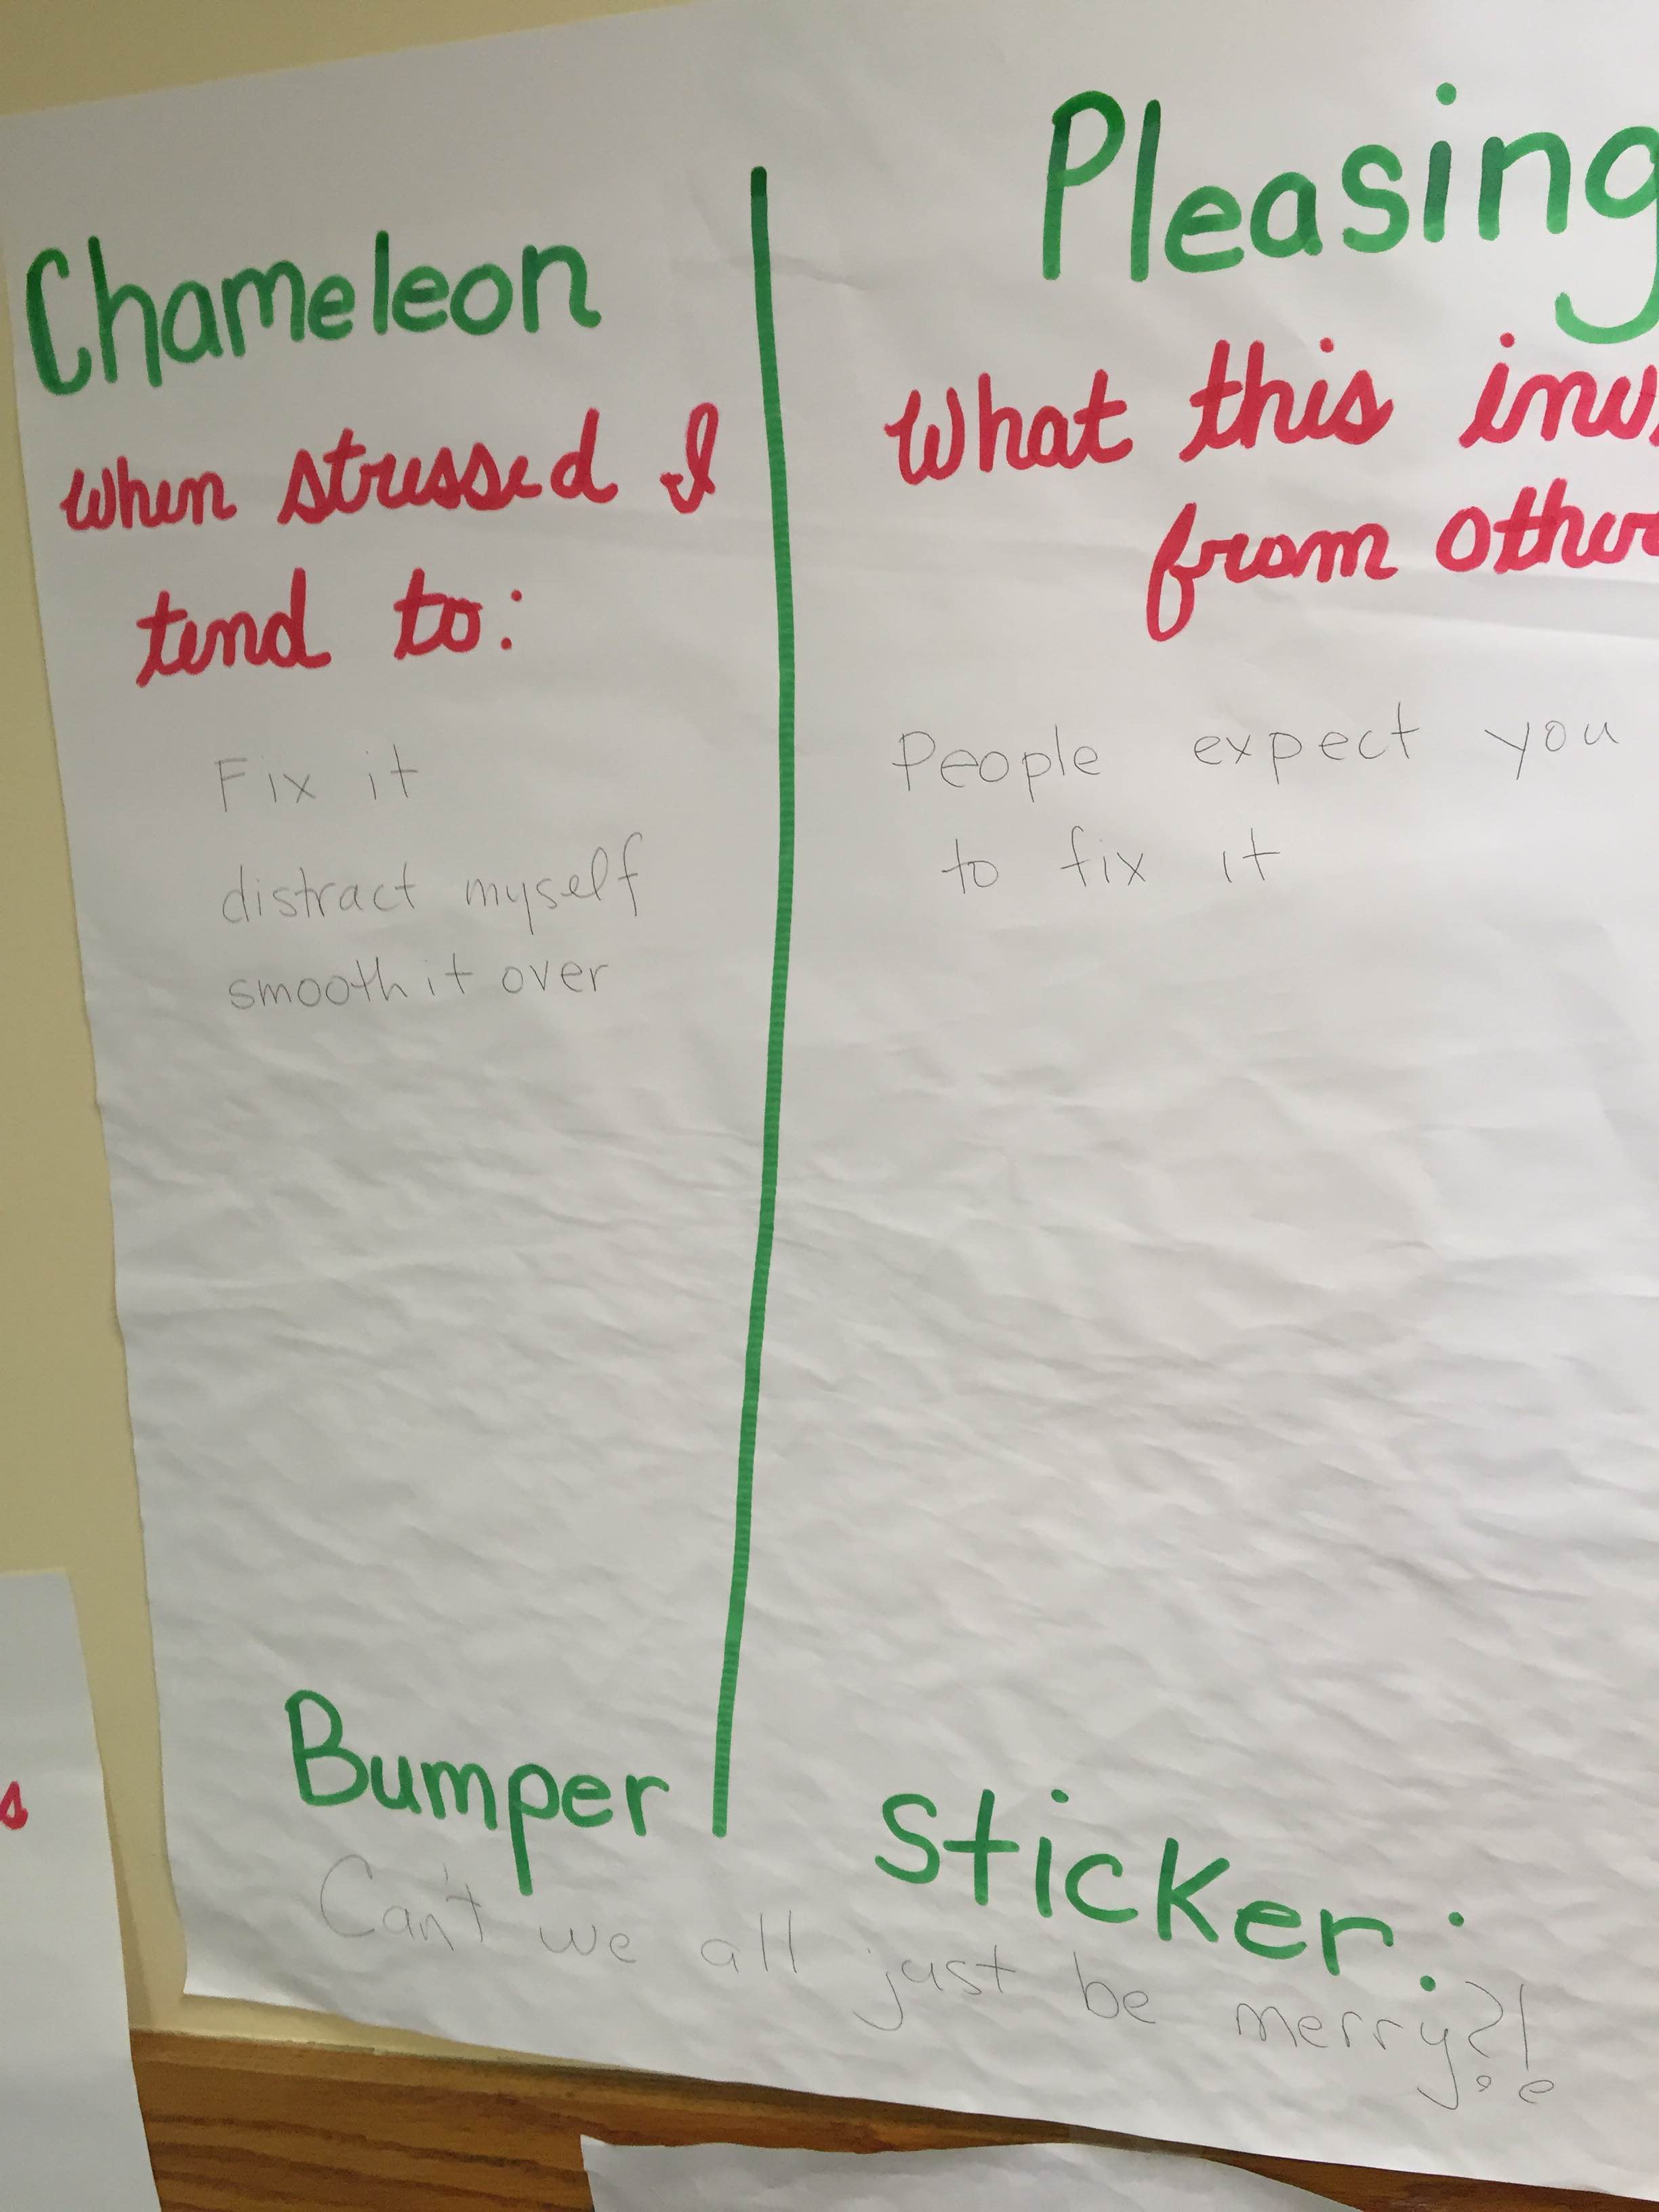 Chameleon
When stressed I
tend to:
Fix it
distract myself
smooth it over
Pleasing
What this
from
People expect you
to fix it
Bumper Sticker:
Can't we all just be merry?!
s